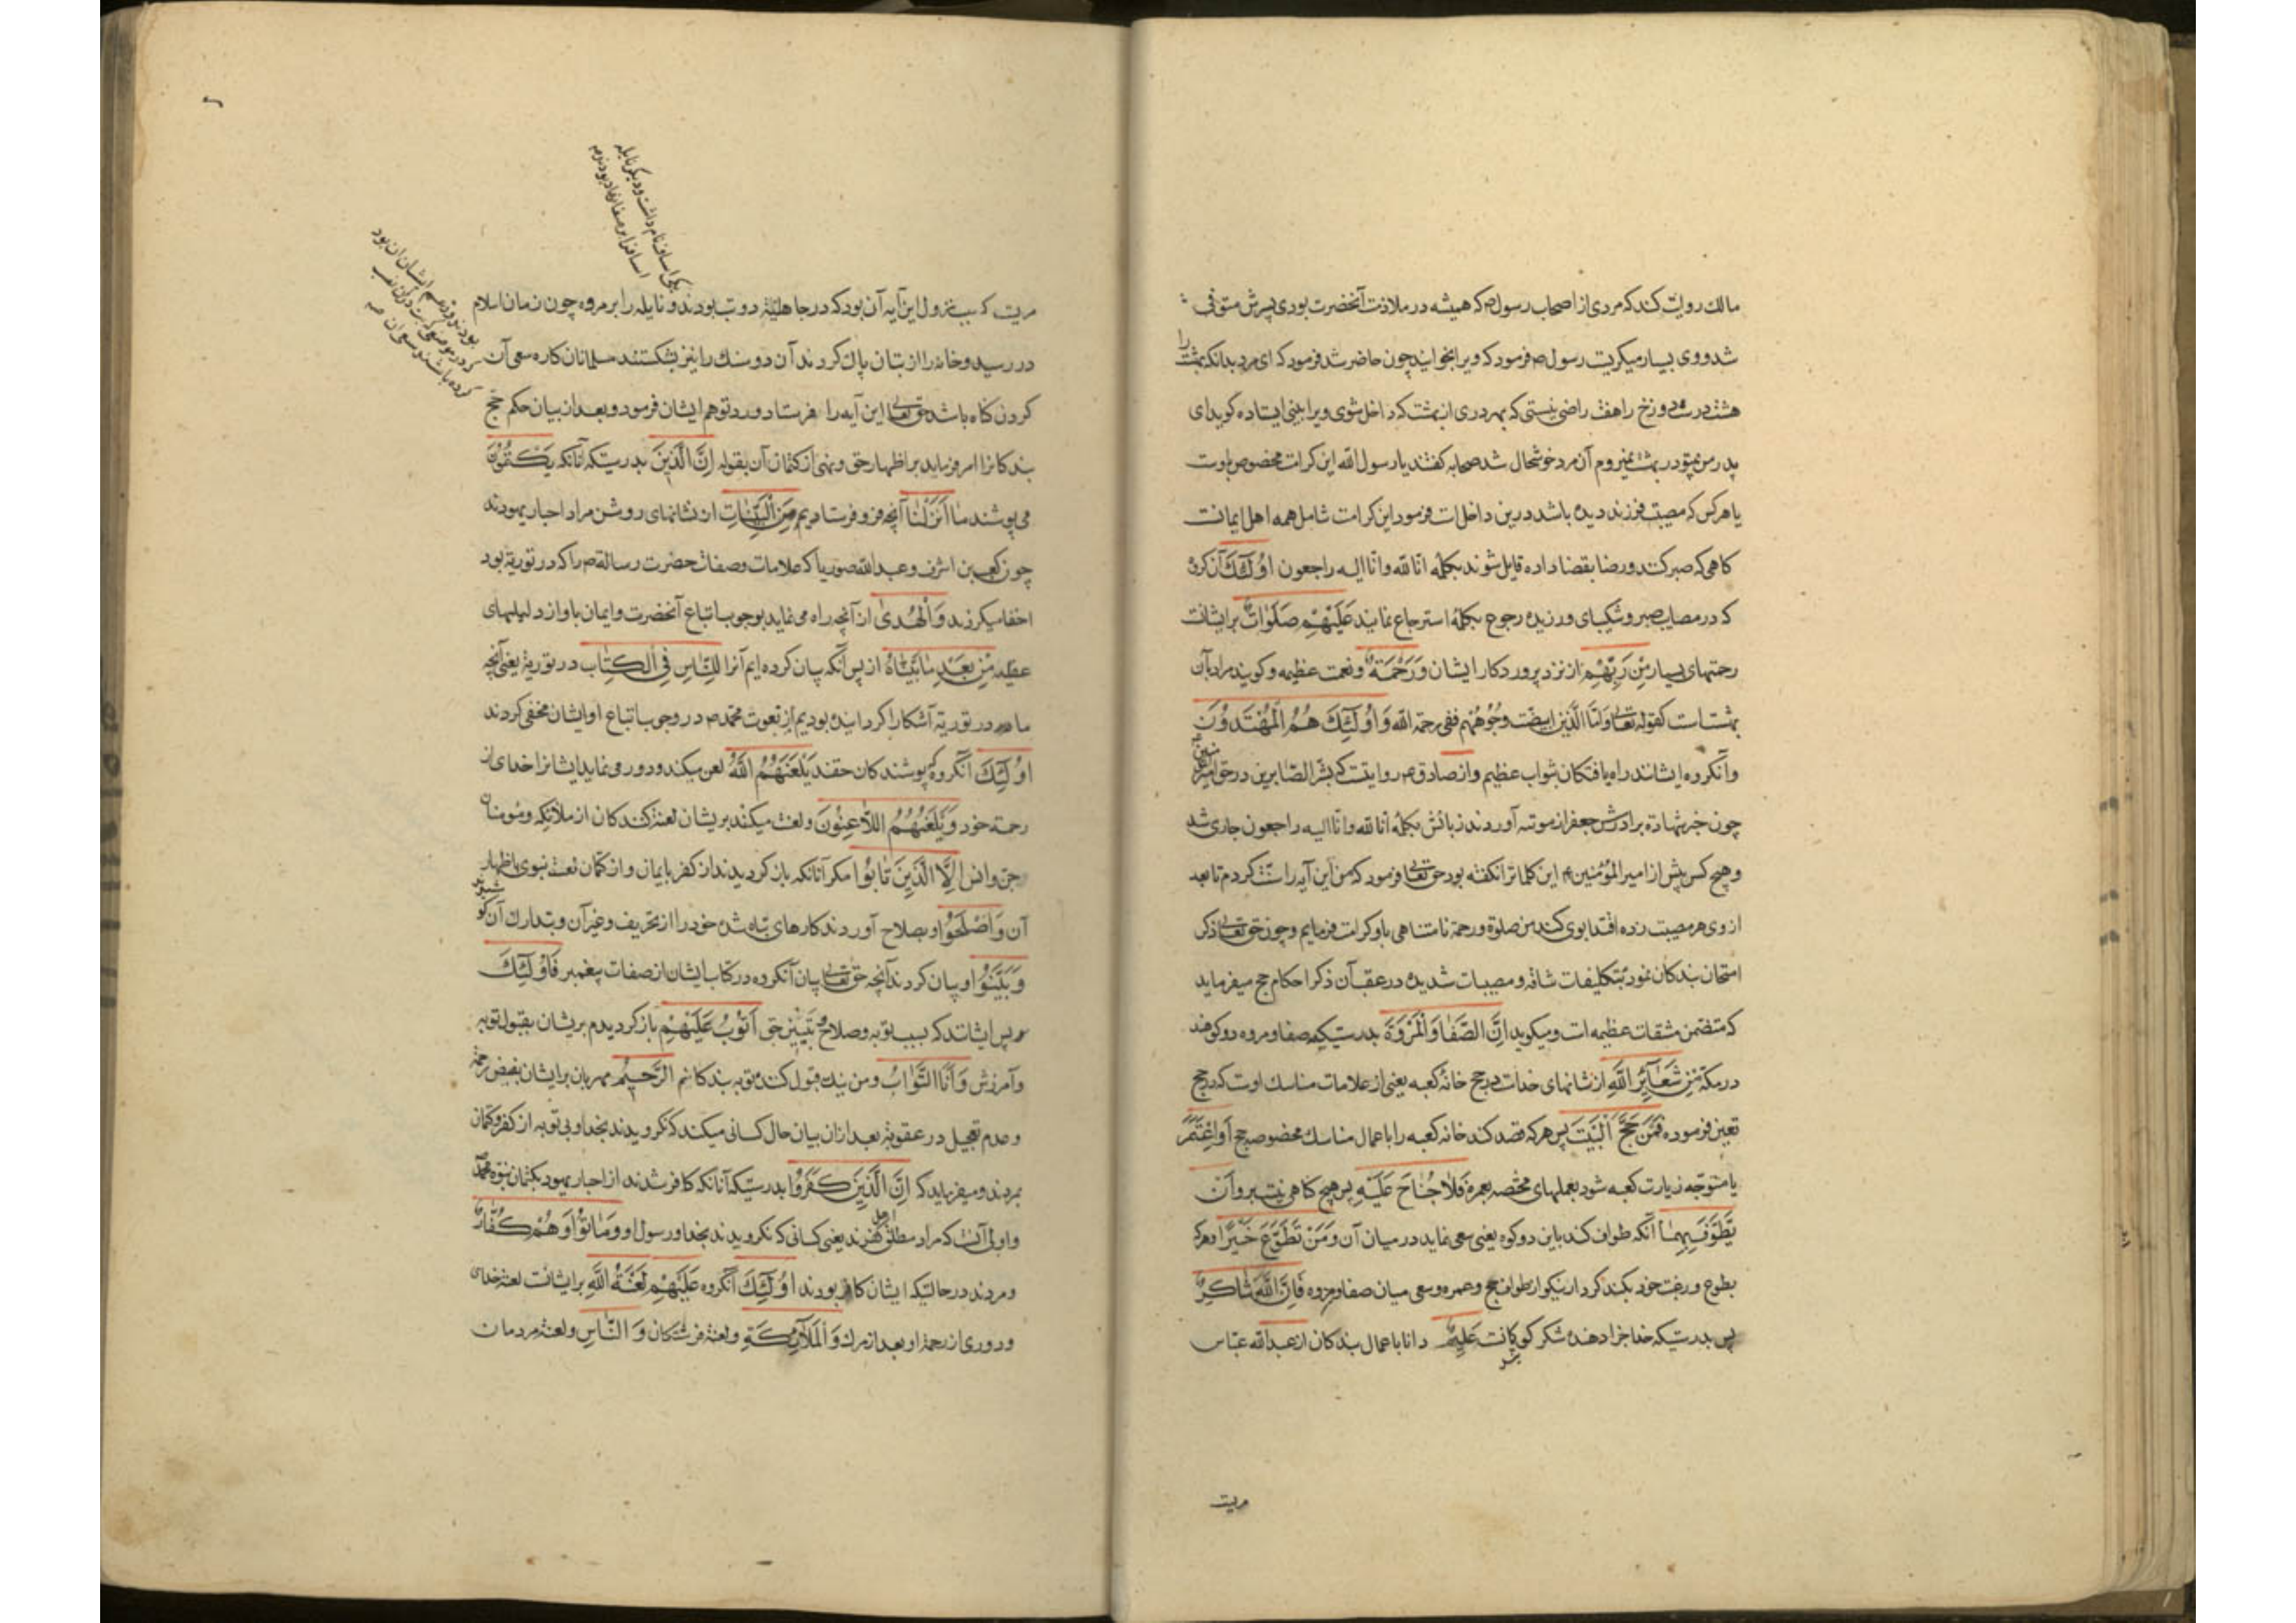 مالك روایت کند که مردی از اصحاب رسول ص که همیشه در ملازمت آنحضرت بودی پسرش متوفی
شد و وی بسیار میکریست رسول ص فرمود که ویرا بخوانید چون حاضر شد فرمود که ای مرد بدانکه بهشت را
هشت درست و دوزخ را هفت راضی نیستی که بهر دری از بهشت که داخل شوی ویرا بینی ایستاده کوید ای
پدر من بیتو در بهشت نمیروم آن مرد خوشحال شد صحابه کفتند یا رسول الله این کرامت مخصوص باوست
یا هر کس که مصیبت فرزند دیده باشد درین داخل است فرمود این کرامت شامل همه اهل ایمانست
کاهی که صبر کنند و رضا بقضا داده قایل شوند بکلمه انا لله وانا الیه راجعون اُولٰئِكَ آن کروه
که در مصایب صبر و شکیبای ورزیده رجوع بکلمه استرجاع نمایند عَلَیْهِمْ صَلَوَاتٌ بر ایشانست
رحمتهای بسیار مِنْ رَبِّهِمْ از نزد پروردکار ایشان وَرَحْمَةٌ و نعمت عظیمه و کویند مراد بآن
بهشت است کقوله تعالی وَاَمَّا الَّذِینَ ابیضت وُجُوهُهُم ففی رحمة الله وَاُولٰئِكَ هُمُ الْمُهْتَدُونَ
وآنکروه ایشانند راه یافتکان بثواب عظیم و از صادق ع روایتست که بشّر الصّابرین در حق امیر المؤمنین
چون خبر شهادة برادرش جعفر از موته آوردند زبانش بکلمه انا لله وانا الیه راجعون جاری شد
و هیچ کس پیش از امیر المؤمنین ع این کلماترا نکفته بود حق تعالی فرمود که من این آیه را سنّت کردم تا بعد
از وی هر مصیبت زده اقتدا بوی کند من صلوة و رحمة نامتناهی باو کرامت فرمایم و چون حق تعالی ذکر
امتحان بندکان نمود بتکلیفات شاقه و مصیبات شدیده در عقب آن ذکر احکام حج میفرماید
که متضمن مشقات عظیمه است ومیکوید اِنَّ الصَّفَا وَالْمَرْوَةَ بدرستیکه صفا و مروه دو کوهند
در مکه مِنْ شَعَآئِرِ اللّٰهِ از نشانهای خداست در حج خانۀ کعبه یعنی از علامات مناسك اوست که در حج
تعین فرموده فَمَنْ حَجَّ الْبَیْتَ پس هر که قصد کند خانه کعبه را باعمال مناسك مخصوصه حج اَوِ اعْتَمَرَ
یا متوجّه زیارت کعبه شود بعملهای مختصه بعمره فَلَا جُنَاحَ عَلَیْهِ پس هیچ کناهی نیست برو اَنْ
یَطَّوَّفَ بِهِمَا آنکه طواف کند باین دو کوه یعنی سعی نماید در میان آن وَمَنْ تَطَوَّعَ خَیْرًا و هر که
بطوع و رغبت خود بکند کردار نیکو از طواف حج و عمره و سعی میان صفا و مروه فَاِنَّ اللّٰهَ شَاكِرٌ
پس بدرستیکه خدا جزا دهنده شکر کویانست عَلِیمٌ دانا باعمال بندکان از عبدالله عباس
مریست
مریست که سبب نزول این آیه آن بود که در جاهلیّة دو بت بودند و نایله را بر مروه چون زمان اسلام
یکی اساف نام داشت و دیکر نایله
اساف را بر صفا نهاده بودند
در رسید و خانه را از بتان پاك کردند آن دو سنك را نیز بشکستند مسلمانان کاره سعی آن
کردن کناه باشد حق تعالی این آیه را فرستاد و رد توهم ایشان فرمود و بعد از بیان حکم حج
بندکانرا امر فرماید بر اظهار حق و نهی از کتمان آن بقوله اِنَّ الَّذِینَ بدرستیکه آنانکه یَكْتُمُونَ
می پوشند مَا اَنْزَلْنَا آنچه فرو فرستادیم مِنَ الْبَیِّنَاتِ از نشانهای روشن مراد احبار یهودند
چون کعب بن اشرف و عبدالله صوریا که علامات و صفات حضرت رسالة ص را که در توریة بود
اخفا میکردند وَالْهُدٰی از آنچه راه می نماید بوجوب اتباع آنحضرت و ایمان باو از دلیلهای
عقلیه مِنْ بَعْدِ مَا بَیَّنَّاهُ از پس آنکه بیان کرده ایم آنرا لِلنَّاسِ فِی الْكِتَابِ در توریة یعنی آنچه
ما در توریة آشکارا کردانیده بودیم از نعوت محمد ص در وجوب اتباع او ایشان مخفی کردند
اُولٰئِكَ آنکروه پوشندکان حقند یَلْعَنُهُمُ اللّٰهُ لعن میکند و دور می نماید ایشانرا خدای از
رحمة خود وَیَلْعَنُهُمُ اللَّاعِنُونَ و لعنت میکند بریشان لعنة کنندکان از ملائکه و مؤمنان
جن و انس اِلَّا الَّذِینَ تَابُوا مکر آنانکه باز کردیدند از کفر بایمان و از کتمان نعت نبوی باظهار
آن وَاَصْلَحُوا و بصلاح آوردند کارهای تباه شده خود را از تحریف و غیر آن و بتدارك آن
وَبَیَّنُوا و بیان کردند آنچه حق تعالی بیان آنکرده در کتاب ایشان از صفات پیغمبر فَاُولٰئِكَ
پس ایشانند که بسبب توبه و صلاح و تبیین حق اَتُوبُ عَلَیْهِمْ باز کردیدم بریشان بقبول توبه
و آمرزش وَاَنَا التَّوَّابُ و من نیك قبول کننده توبه بندکانم الرَّحِیمُ مهربان بر ایشان بفیض رحمة
و عدم تعجیل در عقوبة بعد از ان بیان حال کسانی میکند که نکرویدند بخدا و بی توبه از کفر و کتمان
بمردند و میفرماید که اِنَّ الَّذِینَ كَفَرُوا بدرستیکه آنانکه کافر شدند از احبار یهود بکتمان نبوة محمد
و اولی آنست که مراد مطلق کفرند یعنی کسانی که نکرویدند بخدا و رسول او وَمَاتُوا وَهُمْ كُفَّارٌ
و مردند در حالتیکه ایشان کافر بودند اُولٰئِكَ آنکروه عَلَیْهِمْ لَعْنَةُ اللّٰهِ بر ایشانست لعنة خدای
و دوری از رحمة او بعد از مرك وَالْمَلَآئِكَةِ و لعنة فرشتکان وَالنَّاسِ و لعنة مردمان